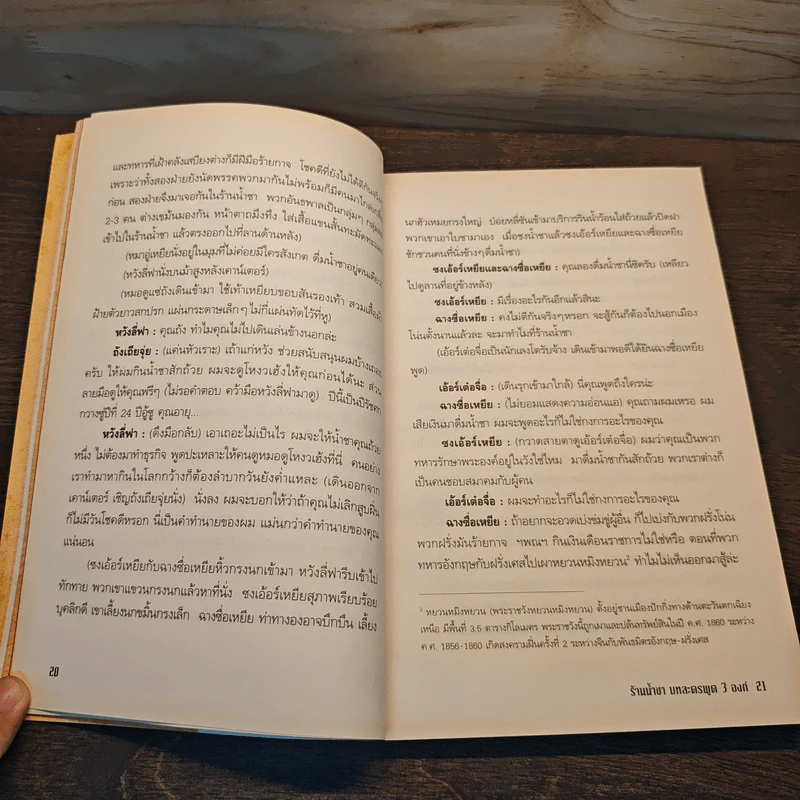 และทหารที่เฝ้าคลังเสบียงต่างก็มีฝีมือร้ายกาจ โชคดีที่ยังไม่ได้ตีกัน
เพราะว่าทั้งสองฝ่ายยังนัดพรรคพวกมากันไม่พร้อมก็มีคนมาไกล่เกลี่ย
ก่อน สองฝ่ายจึงมาเจอกันในร้านน้ำชา พวกอันธพาลเป็นกลุ่มๆ
2-3 คน ต่างเขม้นมองกัน หน้าตาถมึงทึง ใส่เสื้อแขนสั้นทะมัดทะแมง
เข้าไปในร้านน้ำชา แล้วตรงออกไปที่ลานด้านหลัง)
(หมาอู่เหยียนั่งอยู่ในมุมที่ไม่ค่อยมีใครสังเกต ดื่มน้ำชาอยู่คนเดียว)
(หวังลี่ฟานั่งบนม้าสูงหลังเคาน์เตอร์)
(หมอดูแซ่ถังเดินเข้ามา ใช้เท้าเหยียบขอบส้นรองเท้า สวมเสื้อผ้า
ฝ้ายตัวยาวสกปรก แผ่นกระดาษเล็กๆ ไม่กี่แผ่นทัดไว้ที่หู)
หวังลี่ฟา : คุณถัง ทำไมคุณไม่ไปเดินเล่นข้างนอกล่ะ
ถังเถียจุ่ย : (แค่นหัวเราะ) เถ้าแก่หวัง ช่วยสนับสนุนผมบ้างเถอะ
ครับ ให้ผมกินน้ำชาสักถ้วย ผมจะดูโหงวเฮ้งให้คุณก่อนได้นะ ส่วน
ลายมือดูให้คุณฟรีๆ (ไม่รอคำตอบ คว้ามือหวังลี่ฟามาดู) ปีนี้เป็นปีรัชศก
กวางซู่ปีที่ 24 ปีอู้ซู คุณอายุ...
หวังลี่ฟา : (ดึงมือกลับ) เอาเถอะไม่เป็นไร ผมจะให้น้ำชาคุณถ้วย
หนึ่ง ไม่ต้องมาทำธุรกิจ พูดปะเหลาะให้คนดูหมอดูโหงวเฮ้งที่นี่ คนอย่าง
เราทำมาหากินในโลกกว้างก็ต้องลำบากวันยังค่ำแหละ (เดินออกจาก
เคาน์เตอร์ เชิญถังเถียจุ่ยนั่ง) นั่งลง ผมจะบอกให้ว่าถ้าคุณไม่เลิกสูบฝิ่น
ก็ไม่มีวันโชคดีหรอก นี่เป็นคำทำนายของผม แม่นกว่าคำทำนายของคุณ
แน่นอน
(ซงเอ้อร์เหยียกับฉางซื่อเหยียหิ้วกรงนกเข้ามา หวังลี่ฟารีบเข้าไป
ทักทาย พวกเขาแขวนกรงนกแล้วหาที่นั่ง ซงเอ้อร์เหยียสุภาพเรียบร้อย
บุคลิกดี เขาเลี้ยงนกขมิ้นกรงเล็ก ฉางซื่อเหยีย ท่าทางองอาจบึกบึน เลี้ยง
20
นกฮัวเหมยกรงใหญ่ บ๋อยหลี่ซันเข้ามาบริการรินน้ำร้อนใส่ถ้วยแล้วปิดฝา
พวกเขาเอาใบชามาเอง เมื่อชงน้ำชาแล้วซงเอ้อร์เหยียและฉางซื่อเหยีย
ชักชวนคนที่นั่งข้างๆดื่มน้ำชา)
ซงเอ้อร์เหยียและฉางซื่อเหยีย : คุณลองดื่มน้ำชานี่ซิครับ (เหลียว
ไปดูลานที่อยู่ข้างหลัง)
ซงเอ้อร์เหยีย : มีเรื่องอะไรกันอีกแล้วสินะ
ฉางซื่อเหยีย : คงไม่ตีกันจริงๆหรอก จะสู้กันก็ต้องไปนอกเมือง
โน่นตั้งนานแล้วละ จะมาทำไมที่ร้านน้ำชา
(เอ้อร์เต๋อจื่อเป็นนักเลงโตรับจ้าง เดินเข้ามาพอดีได้ยินฉางซื่อเหยีย
พูด)
เอ้อร์เต๋อจื่อ : (เดินรุกเข้ามาใกล้) นี่คุณพูดถึงใครน่ะ
ฉางซื่อเหยีย : (ไม่ยอมแสดงความอ่อนแอ) คุณถามผมเหรอ ผม
เสียเงินมาดื่มน้ำชา ผมจะพูดอะไรก็ไม่ใช่กงการอะไรของคุณ
ซงเอ้อร์เหยีย : (กวาดสายตาดูเอ้อร์เต๋อจื่อ) ผมว่าคุณเป็นพวก
ทหารรักษาพระองค์อยู่ในวังใช่ไหม มาดื่มน้ำชากันสักถ้วย พวกเราต่างก็
เป็นคนชอบสมาคมกับผู้คน
เอ้อร์เต๋อจื่อ : ผมจะทำอะไรก็ไม่ใช่กงการอะไรของคุณ
ฉางซื่อเหยีย : ถ้าอยากจะอวดเบ่งข่มขู่ผู้อื่น ก็ไปเบ่งกับพวกฝรั่งโน่น
พวกฝรั่งมันร้ายกาจ ฯพณฯ กินเงินเดือนราชการไม่ใช่หรือ ตอนที่พวก
ทหารอังกฤษกับฝรั่งเศสไปเผาหยวนหมิงหยวน² ทำไมไม่เห็นออกมาสู้ล่ะ
² หยวนหมิงหยวน (พระราชวังหยวนหมิงหยวน) ตั้งอยู่ชานเมืองปักกิ่งทางด้านตะวันตกเฉียง
เหนือ มีพื้นที่ 3.5 ตารางกิโลเมตร พระราชวังนี้ถูกเผาและปล้นทรัพย์สินในปี ค.ศ. 1860 ระหว่าง
ค.ศ. 1856-1860 เกิดสงครามฝิ่นครั้งที่ 2 ระหว่างจีนกับพันธมิตรอังกฤษ-ฝรั่งเศส
ร้านน้ำชา บทละครพูด 3 องก์ 21